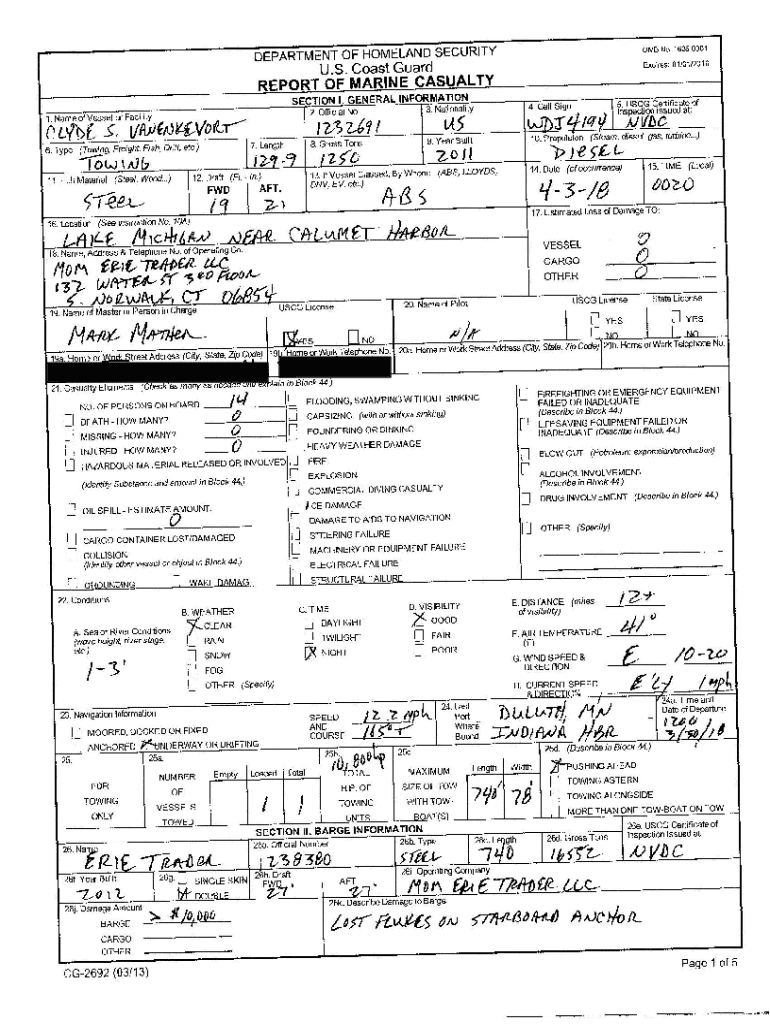 DEPARTMENT OF HOMELAND SECURITY
U.S. Coast Guard
REPORT OF MARINE CASUALTY
OMB No. 1625-0001
Expires: 01/31/2016
SECTION I. GENERAL INFORMATION
1. Name of Vessel or Facility
CLYDE S. VANENKEVORT
2. Official No.
1232691
3. Nationality
US
4. Call Sign
WDJ4194
5. USCG Certificate of Inspection issued at:
NVDC
6. Type (Towing, Freight, Fish, Drill, etc.)
TOWING
7. Length
129-9
8. Gross Tons
1250
9. Year Built
2011
10. Propulsion (Steam, diesel, gas, turbine...)
DIESEL
11. Hull Material (Steel, Wood...)
STEEL
12. Draft (Ft. - in.)
FWD AFT.
19 21
13. If Vessel Classed, By Whom: (ABS, LLOYDS, DNV, BV, etc.)
ABS
14. Date (of occurrence)
4-3-18
15. TIME (Local)
0020
16. Location (See Instruction No. 10A)
LAKE MICHIGAN NEAR CALUMET HARBOR
17. Estimated Loss of Damage TO:
VESSEL 0
CARGO 0
OTHER 0
18. Name, Address & Telephone No. of Operating Co.
MOM ERIE TRADER LLC
137 WATER ST 3RD FLOOR
S. NORWALK, CT 06854
19. Name of Master or Person in Charge
MARK MATHER
USCG License
YES NO
20. Name of Pilot
N/A
USCG License State License
YES YES
NO NO
19a. Home or Work Street Address (City, State, Zip Code) 19b. Home or Work Telephone No.
20a. Home or Work Street Address (City, State, Zip Code) 20b. Home or Work Telephone No.
21. Casualty Elements (Check as many as needed and explain in Block 44.)
NO. OF PERSONS ON BOARD 14
DEATH - HOW MANY? 0
MISSING - HOW MANY? 0
INJURED - HOW MANY? 0
HAZARDOUS MATERIAL RELEASED OR INVOLVED
(Identify Substance and amount in Block 44.)
OIL SPILL - ESTIMATE AMOUNT:
0
CARGO CONTAINER LOST/DAMAGED
COLLISION
(Identify other vessel or object in Block 44.)
GROUNDING WAKE DAMAG
FLOODING, SWAMPING WITHOUT SINKING
CAPSIZING (with or without sinking)
FOUNDERING OR SINKING
HEAVY WEATHER DAMAGE
FIRE
EXPLOSION
COMMERCIAL DIVING CASUALTY
ICE DAMAGE
DAMAGE TO AIDS TO NAVIGATION
STEERING FAILURE
MACHINERY OR EQUIPMENT FAILURE
ELECTRICAL FAILURE
STRUCTURAL FAILURE
FIREFIGHTING OR EMERGENCY EQUIPMENT
FAILED OR INADEQUATE
(Describe in Block 44.)
LIFESAVING EQUIPMENT FAILED OR
INADEQUATE (Describe in Block 44.)
BLOW OUT (Petroleum exploration/production)
ALCOHOL INVOLVEMENT
(Describe in Block 44.)
DRUG INVOLVEMENT (Describe in Block 44.)
OTHER (Specify)
22. Conditions
A. Sea or River Conditions
(wave height, river stage, etc.)
1-3'
B. WEATHER
X CLEAR
RAIN
SNOW
FOG
OTHER (Specify)
C. TIME
DAYLIGHT
TWILIGHT
X NIGHT
D. VISIBILITY
X GOOD
FAIR
POOR
E. DISTANCE (miles of visibility) 12+
F. AIR TEMPERATURE (F) 41°
G. WIND SPEED & DIRECTION E 10-20
H. CURRENT SPEED & DIRECTION E'LY 1 mph
23. Navigation Information
MOORED, DOCKED OR FIXED
ANCHORED X UNDERWAY OR DRIFTING
SPEED AND COURSE
12.2 mph
115° T
24. Last Port Where Bound
DULUTH, MN
INDIANA HBR
24a. Time and Date of Departure
1200
3/30/18
25.
FOR
TOWING
ONLY
25a.
NUMBER
OF
VESSELS
TOWED
Empty Loaded Total
1 1
25b.
10,800 hp
TOTAL
H.P. OF
TOWING
UNITS
25c.
MAXIMUM
SIZE OF TOW
WITH TOW-
BOAT(S)
Length Width
740' 78'
25d. (Describe in Block 44.)
X PUSHING AHEAD
TOWING ASTERN
TOWING ALONGSIDE
MORE THAN ONE TOW-BOAT ON TOW
SECTION II. BARGE INFORMATION
26. Name
ERIE TRADER
26a. Official Number
1238380
26b. Type
STEEL
26c. Length
740
26d. Gross Tons
16552
26e. USCG Certificate of Inspection Issued at:
NVDC
26f. Year Built
2012
26g. SINGLE SKIN
X DOUBLE
26h. Draft
FWD AFT
27' 27'
26i. Operating Company
MOM ERIE TRADER LLC
26j. Damage Amount
BARGE > $10,000
CARGO
OTHER
26k. Describe Damage to Barge
LOST FLUKES ON STARBOARD ANCHOR
CG-2692 (03/13)
Page 1 of 5